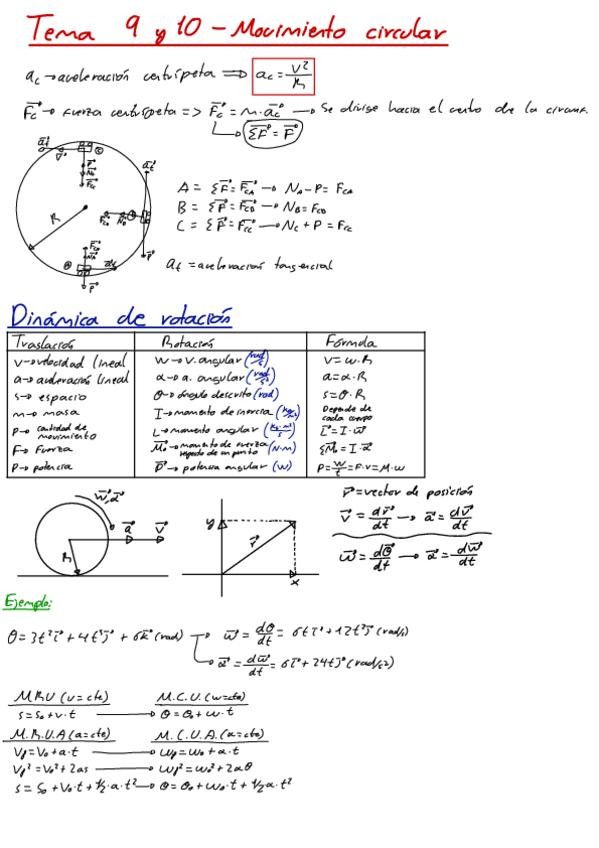 Tema 9 y 10 - Movimiento circular
ac → aceleración centrípeta => ac = v²/R
Fc → Fuerza centrípeta => Fc = m·ac → Se dirige hacia el centro de la circunf.
ΣF = F
at
v
P
Fcc
at
R
P
at
P
A = ΣF = FcA → NA - P = FcA
B = ΣF = FcB → NB = FcB
C = ΣF = Fcc → Nc + P = Fcc
at = aceleración tangencial
Dinámica de rotación
Traslación Rotación Fórmula
v → velocidad lineal w → v. angular (rad/s) v = w·R
a → aceleración lineal α → a. angular (rad/s²) a = α·R
s → espacio θ → ángulo descrito (rad) s = θ·R
m → masa I → momento de inercia Depende de cada cuerpo
p → cantidad de movimiento L → momento angular (kg·m²/s) L = I·w
F → Fuerza Mo → momento de fuerza respecto de un punto (N·m) ΣMo = I·α
P → potencia P → potencia angular (W) P = W/t = F·v = M·w
w, α
a v
R
y
r
x
r = vector de posición
v = dr/dt → a = dv/dt
w = dθ/dt → α = dw/dt
Ejemplo:
θ = 3t²i + 4t³j + 6k (rad) → w = dθ/dt = 6ti + 12t²j (rad/s)
α = dw/dt = 6i + 24tj (rad/s²)
M.R.U (v = cte) M.C.U. (w = cte)
s = so + v·t → θ = θo + w·t
M.R.U.A (a = cte) M.C.U.A. (α = cte)
Vf = Vo + a·t → wf = wo + α·t
Vf² = Vo² + 2as → wf² = wo² + 2αθ
s = So + Vo·t + 1/2·a·t² → θ = θo + wo·t + 1/2α·t²